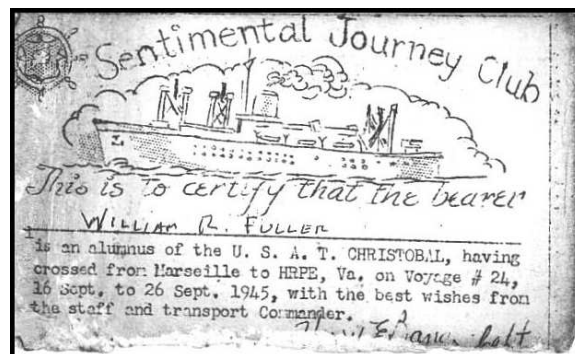 Sentimental Journey Club
This is to certify that the bearer
WILLIAM R. FULLER
is an alumnus of the U. S. A. T. CHRISTOBAL, having
crossed from Marseille to HRPE, Va. on Voyage # 24,
16 Sept. to 26 Sept. 1945, with the best wishes from
the staff and transport Commander.